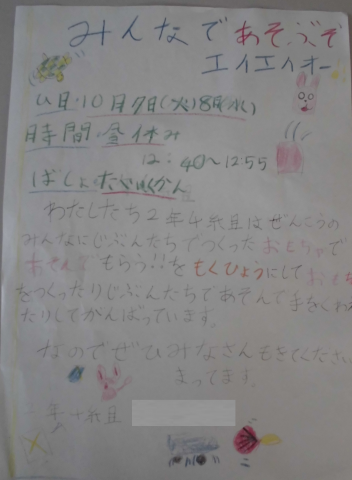 みんなであそぶぞ
エイエイオー
日・10月7日(火)8日(水)
時間・昼休み
12:40〜12:55
ばしょ・たいいくかん
わたしたち2年4組はぜんこうの
みんなにじぶんたちでつくったおもちゃで
もらう!!をもくひょうにしておもち
をつくったりじぶんたちであそんで手をくわ
たりしてがんばっています。
なのでぜひみなさんもきてください
まってます。
年 組